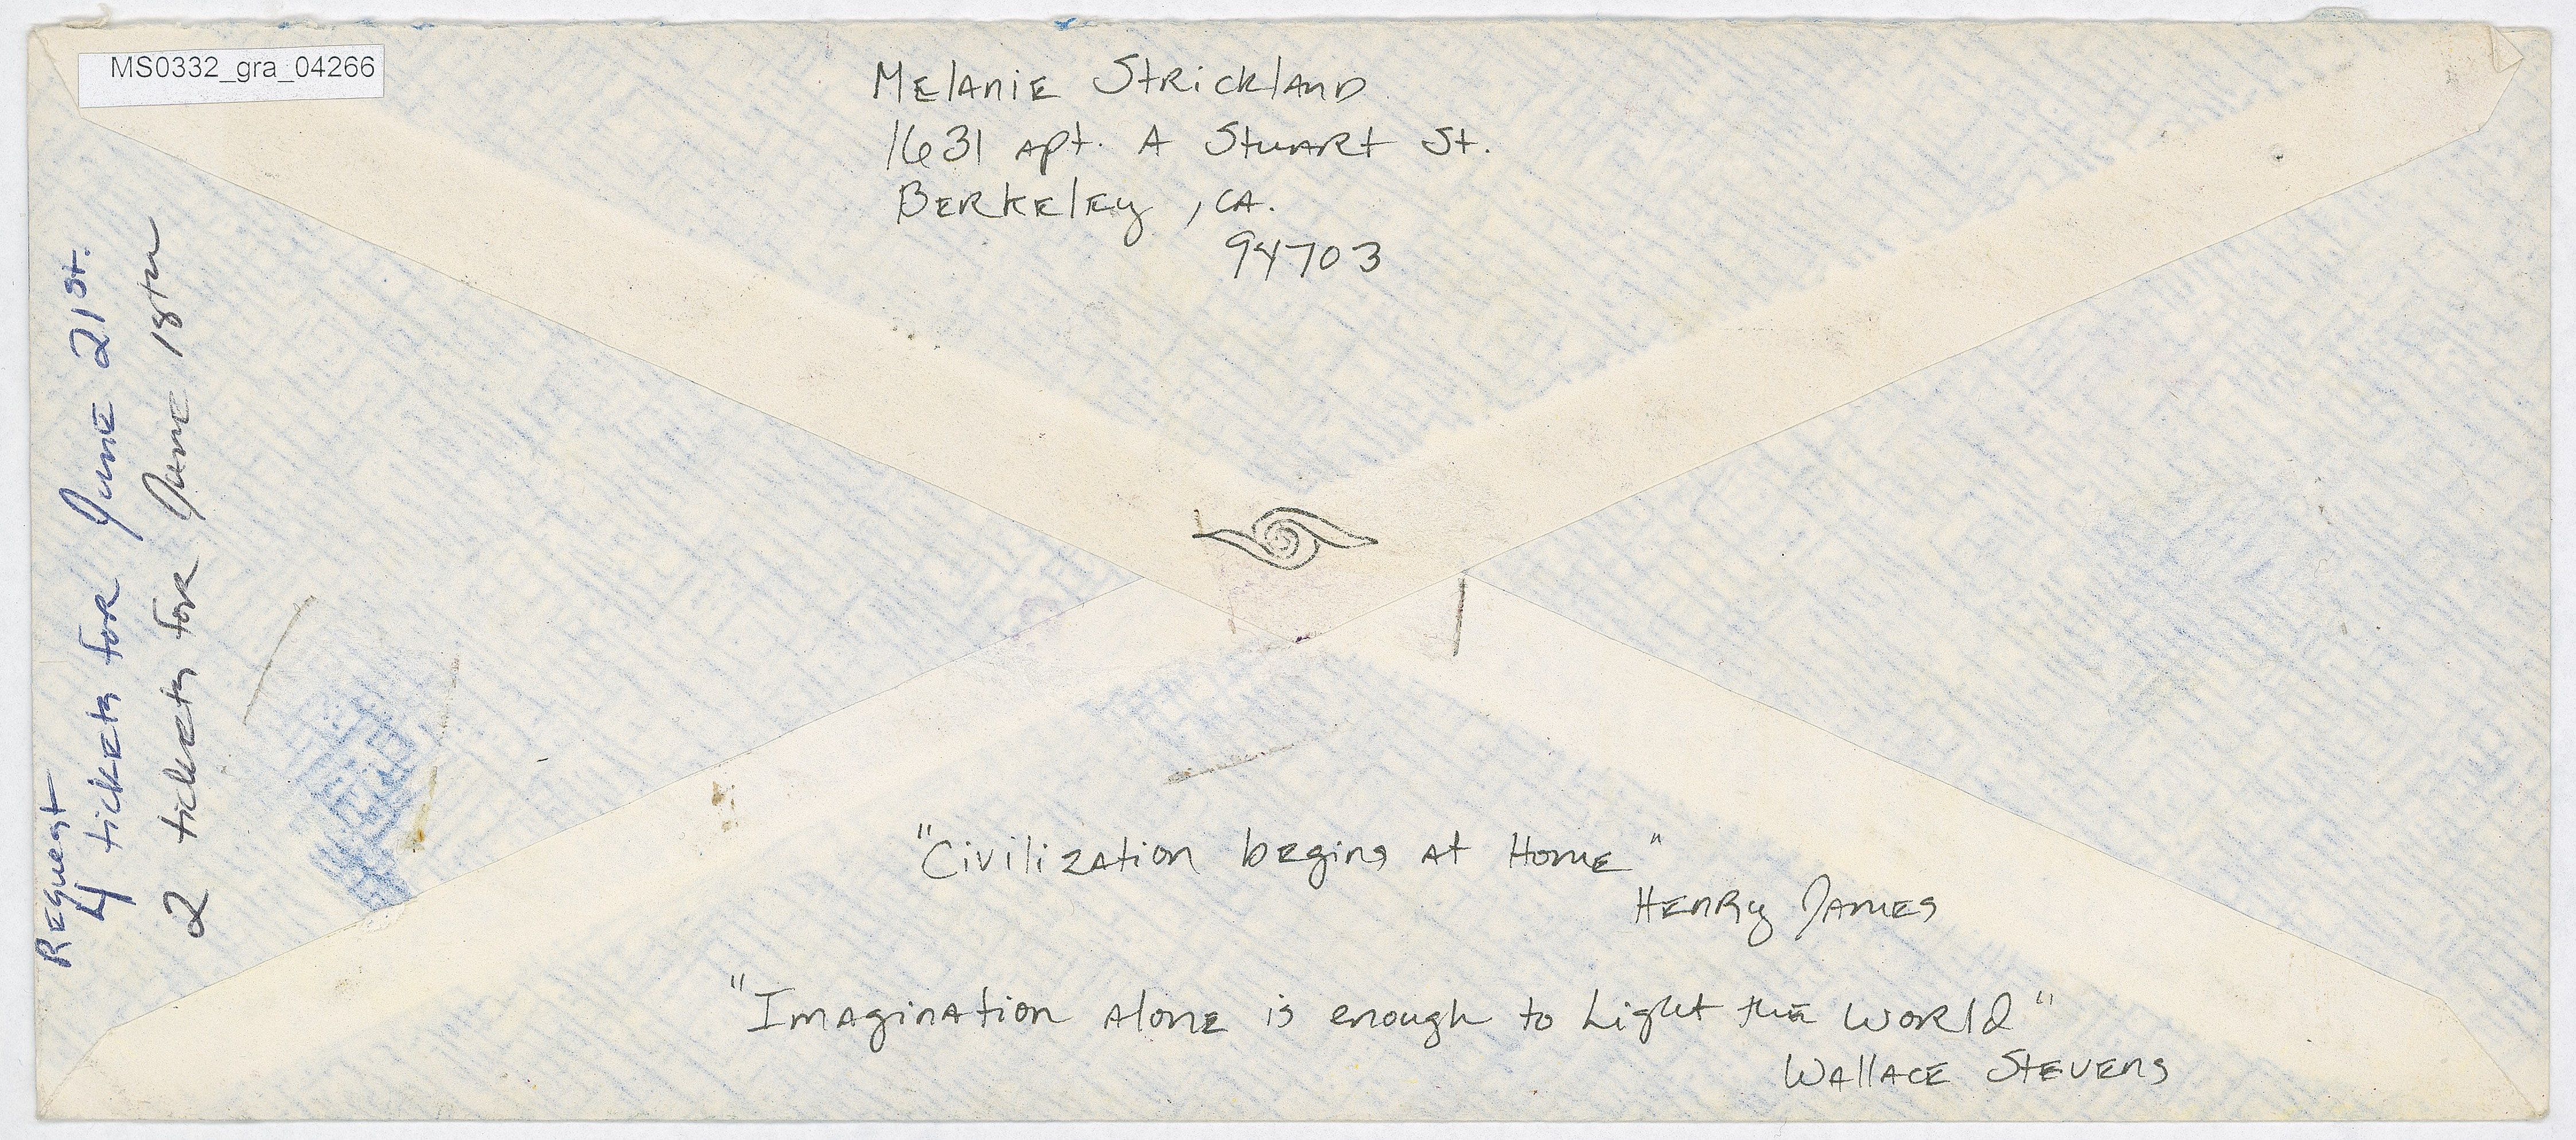 MS0332_gra_04266
Melanie Strickland
1631 apt. A Stuart St.
Berkeley, CA.
94703
Request
4 tickets for June 21st.
2 tickets for June 18th
"Civilization begins at Home"
Henry James
"Imagination alone is enough to Light the World"
Wallace Stevens